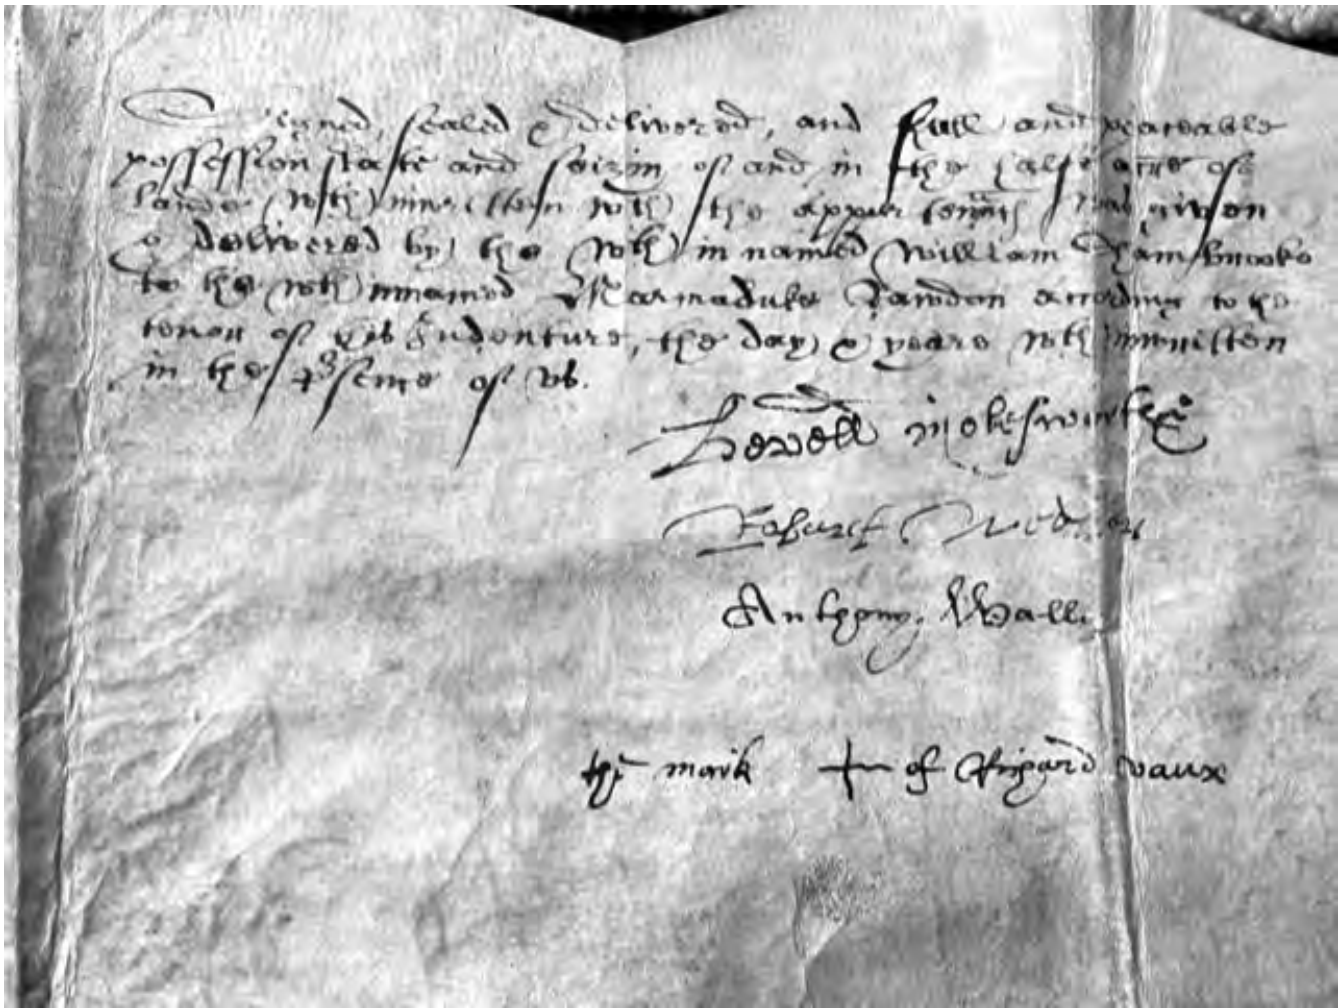 Signed, sealed & delivered, and full and peaceable
possession state and seizin of and in the halfe acre of
lande wth inwritten wth the appurtennc was given
& delivered by the wth in named William Shambrooke
to the wth innamed Marmaduke Rawdon according to the
tenor of this Indenture, the day & yeare wth inwritten
in the psence of vs.
Hewell
Robart
Anthony Wall
the mark of Richard vaux